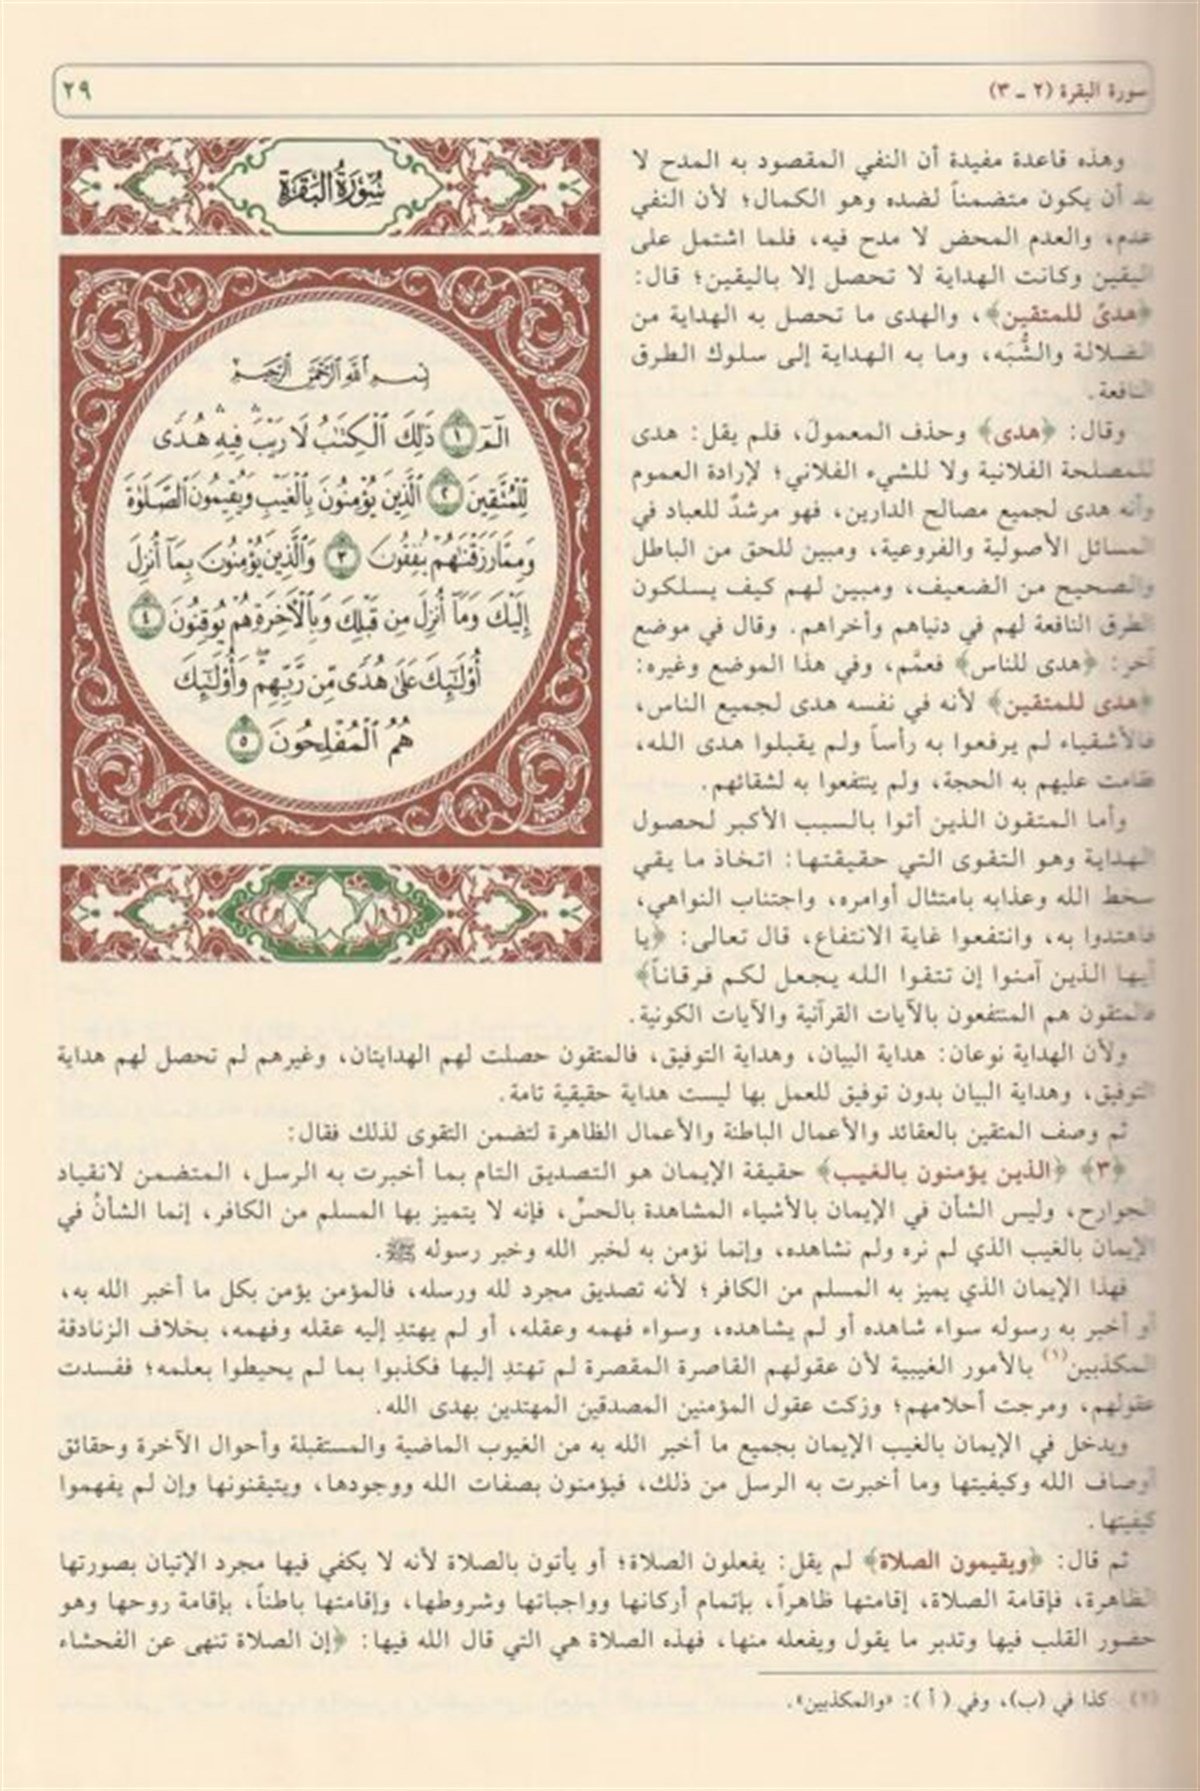 سورة البقرة (٢ - ٣)
٢٩
وهذه قاعدة مفيدة أن النفي المقصود به المدح لا
بد أن يكون متضمناً لضده وهو الكمال؛ لأن النفي
عدم، والعدم المحض لا مدح فيه، فلما اشتمل على
اليقين وكانت الهداية لا تحصل إلا باليقين؛ قال:
﴿هدىً للمتقين﴾، والهدى ما تحصل به الهداية من
الضلالة والشُّبَه، وما به الهداية إلى سلوك الطرق
النافعة.
وقال: ﴿هدى﴾ وحذف المعمول، فلم يقل: هدى
للمصلحة الفلانية ولا للشيء الفلاني؛ لإرادة العموم
وأنه هدى لجميع مصالح الدارين، فهو مرشدٌ للعباد في
المسائل الأصولية والفروعية، ومبين للحق من الباطل
والصحيح من الضعيف، ومبين لهم كيف يسلكون
الطرق النافعة لهم في دنياهم وأخراهم. وقال في موضع
آخر: ﴿هدى للناس﴾ فعمَّم، وفي هذا الموضع وغيره:
﴿هدى للمتقين﴾ لأنه في نفسه هدى لجميع الناس،
فالأشقياء لم يرفعوا به رأساً ولم يقبلوا هدى الله،
فقامت عليهم به الحجة، ولم ينتفعوا به لشقائهم.
وأما المتقون الذين أتوا بالسبب الأكبر لحصول
الهداية وهو التقوى التي حقيقتها: اتخاذ ما يقي
سخط الله وعذابه بامتثال أوامره، واجتناب النواهي،
فاهتدوا به، وانتفعوا غاية الانتفاع، قال تعالى: ﴿يا
أيها الذين آمنوا إن تتقوا الله يجعل لكم فرقاناً﴾
فالمتقون هم المنتفعون بالآيات القرآنية والآيات الكونية.
سُورَةُ البَقَرَةِ
بِسْمِ اللَّهِ الرَّحْمَٰنِ الرَّحِيمِ
الٓمٓ ١ ذَٰلِكَ ٱلْكِتَٰبُ لَا رَيْبَ ۛ فِيهِ ۛ هُدًى
لِّلْمُتَّقِينَ ٢ ٱلَّذِينَ يُؤْمِنُونَ بِٱلْغَيْبِ وَيُقِيمُونَ ٱلصَّلَوٰةَ
وَمِمَّا رَزَقْنَٰهُمْ يُنفِقُونَ ٣ وَٱلَّذِينَ يُؤْمِنُونَ بِمَآ أُنزِلَ
إِلَيْكَ وَمَآ أُنزِلَ مِن قَبْلِكَ وَبِٱلْأَخِرَةِ هُمْ يُوقِنُونَ ٤
أُو۟لَٰٓئِكَ عَلَىٰ هُدًى مِّن رَّبِّهِمْ ۖ وَأُو۟لَٰٓئِكَ
هُمُ ٱلْمُفْلِحُونَ ٥
ولأن الهداية نوعان: هداية البيان، وهداية التوفيق، فالمتقون حصلت لهم الهدايتان، وغيرهم لم تحصل لهم هداية
التوفيق، وهداية البيان بدون توفيق للعمل بها ليست هداية حقيقية تامة.
ثم وصف المتقين بالعقائد والأعمال الباطنة والأعمال الظاهرة لتضمن التقوى لذلك فقال:
﴿٣﴾ ﴿الذين يؤمنون بالغيب﴾ حقيقة الإيمان هو التصديق التام بما أخبرت به الرسل، المتضمن لانقياد
الجوارح، وليس الشأن في الإيمان بالأشياء المشاهدة بالحسِّ، فإنه لا يتميز بها المسلم من الكافر، إنما الشأنُ في
الإيمان بالغيب الذي لم نره ولم نشاهده، وإنما نؤمن به لخبر الله وخبر رسوله ﷺ.
فهذا الإيمان الذي يميز به المسلم من الكافر؛ لأنه تصديق مجرد لله ورسله، فالمؤمن يؤمن بكل ما أخبر الله به،
أو أخبر به رسوله سواء شاهده أو لم يشاهده، وسواء فهمه وعقله، أو لم يهتدِ إليه عقله وفهمه، بخلاف الزنادقة
المكذبين(١) بالأمور الغيبية لأن عقولهم القاصرة المقصرة لم تهتدِ إليها فكذبوا بما لم يحيطوا بعلمه؛ ففسدت
عقولهم، ومرجت أحلامهم؛ وزكت عقول المؤمنين المصدقين المهتدين بهدى الله.
ويدخل في الإيمان بالغيب الإيمان بجميع ما أخبر الله به من الغيوب الماضية والمستقبلة وأحوال الآخرة وحقائق
أوصاف الله وكيفيتها وما أخبرت به الرسل من ذلك، فيؤمنون بصفات الله ووجودها، ويتيقنونها وإن لم يفهموا
كيفيتها.
ثم قال: ﴿ويقيمون الصلاة﴾ لم يقل: يفعلون الصلاة؛ أو يأتون بالصلاة لأنه لا يكفي فيها مجرد الإتيان بصورتها
الظاهرة، فإقامة الصلاة، إقامتها ظاهراً، بإتمام أركانها وواجباتها وشروطها، وإقامتها باطناً، بإقامة روحها وهو
حضور القلب فيها وتدبر ما يقول ويفعله منها، فهذه الصلاة هي التي قال الله فيها: ﴿إن الصلاة تنهى عن الفحشاء
(١) كذا في (ب)، وفي ( أ ): «والمكذبين».